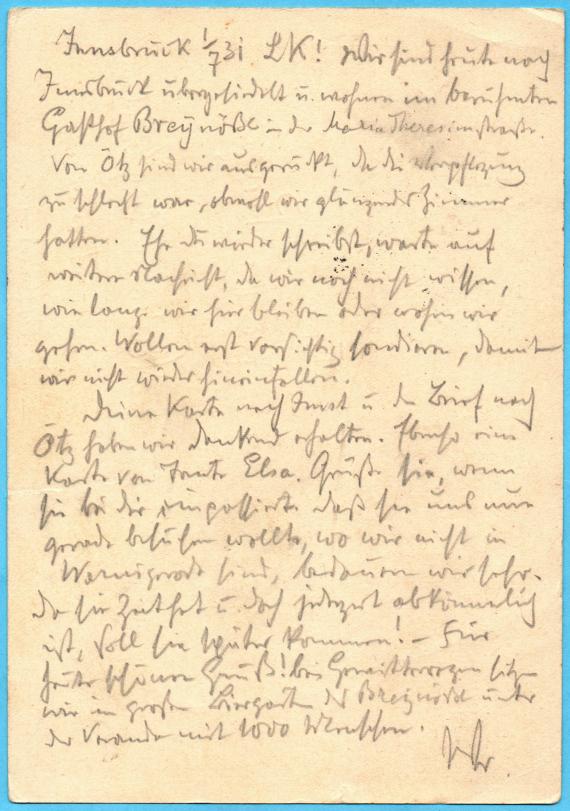 Innsbruck 1/7 31 LK! Wir sind heute nach
Innsbruck übergesiedelt u. wohnen im berühmten
Gasthof Breinößl in der Maria Theresienstraße.
Von Ötz sind wir ausgerückt, da die Verpflegung
zu schlecht war, obwohl wir glänzende Zimmer
hatten. Ehe du wieder schreibst, warte auf
weitere Nachricht, da wir noch nicht wissen,
wie lange wir hier bleiben oder wohin wir
gehen. Wollen erst vorsichtig sondieren, damit
wir nicht wieder hineinfallen.
Deine Karte nach Imst u. den Brief nach
Ötz haben wir dankend erhalten. Ebenso eine
Karte von Tante Elsa. Grüße sie, wenn
sie bei dir Daß sie uns nun
gerade besuchen wollte, wo wir nicht in
Wernigerode sind, bedauern wir sehr.
Da sie Zeit hat u. doch jederzeit abkömmlich
ist, soll sie später kommen! – Für
heute schönen Gruß! bei Gewitterregen sitzen
wir im großen Biergarten des Breinößl unter
der Veranda mit 1000 Menschen.